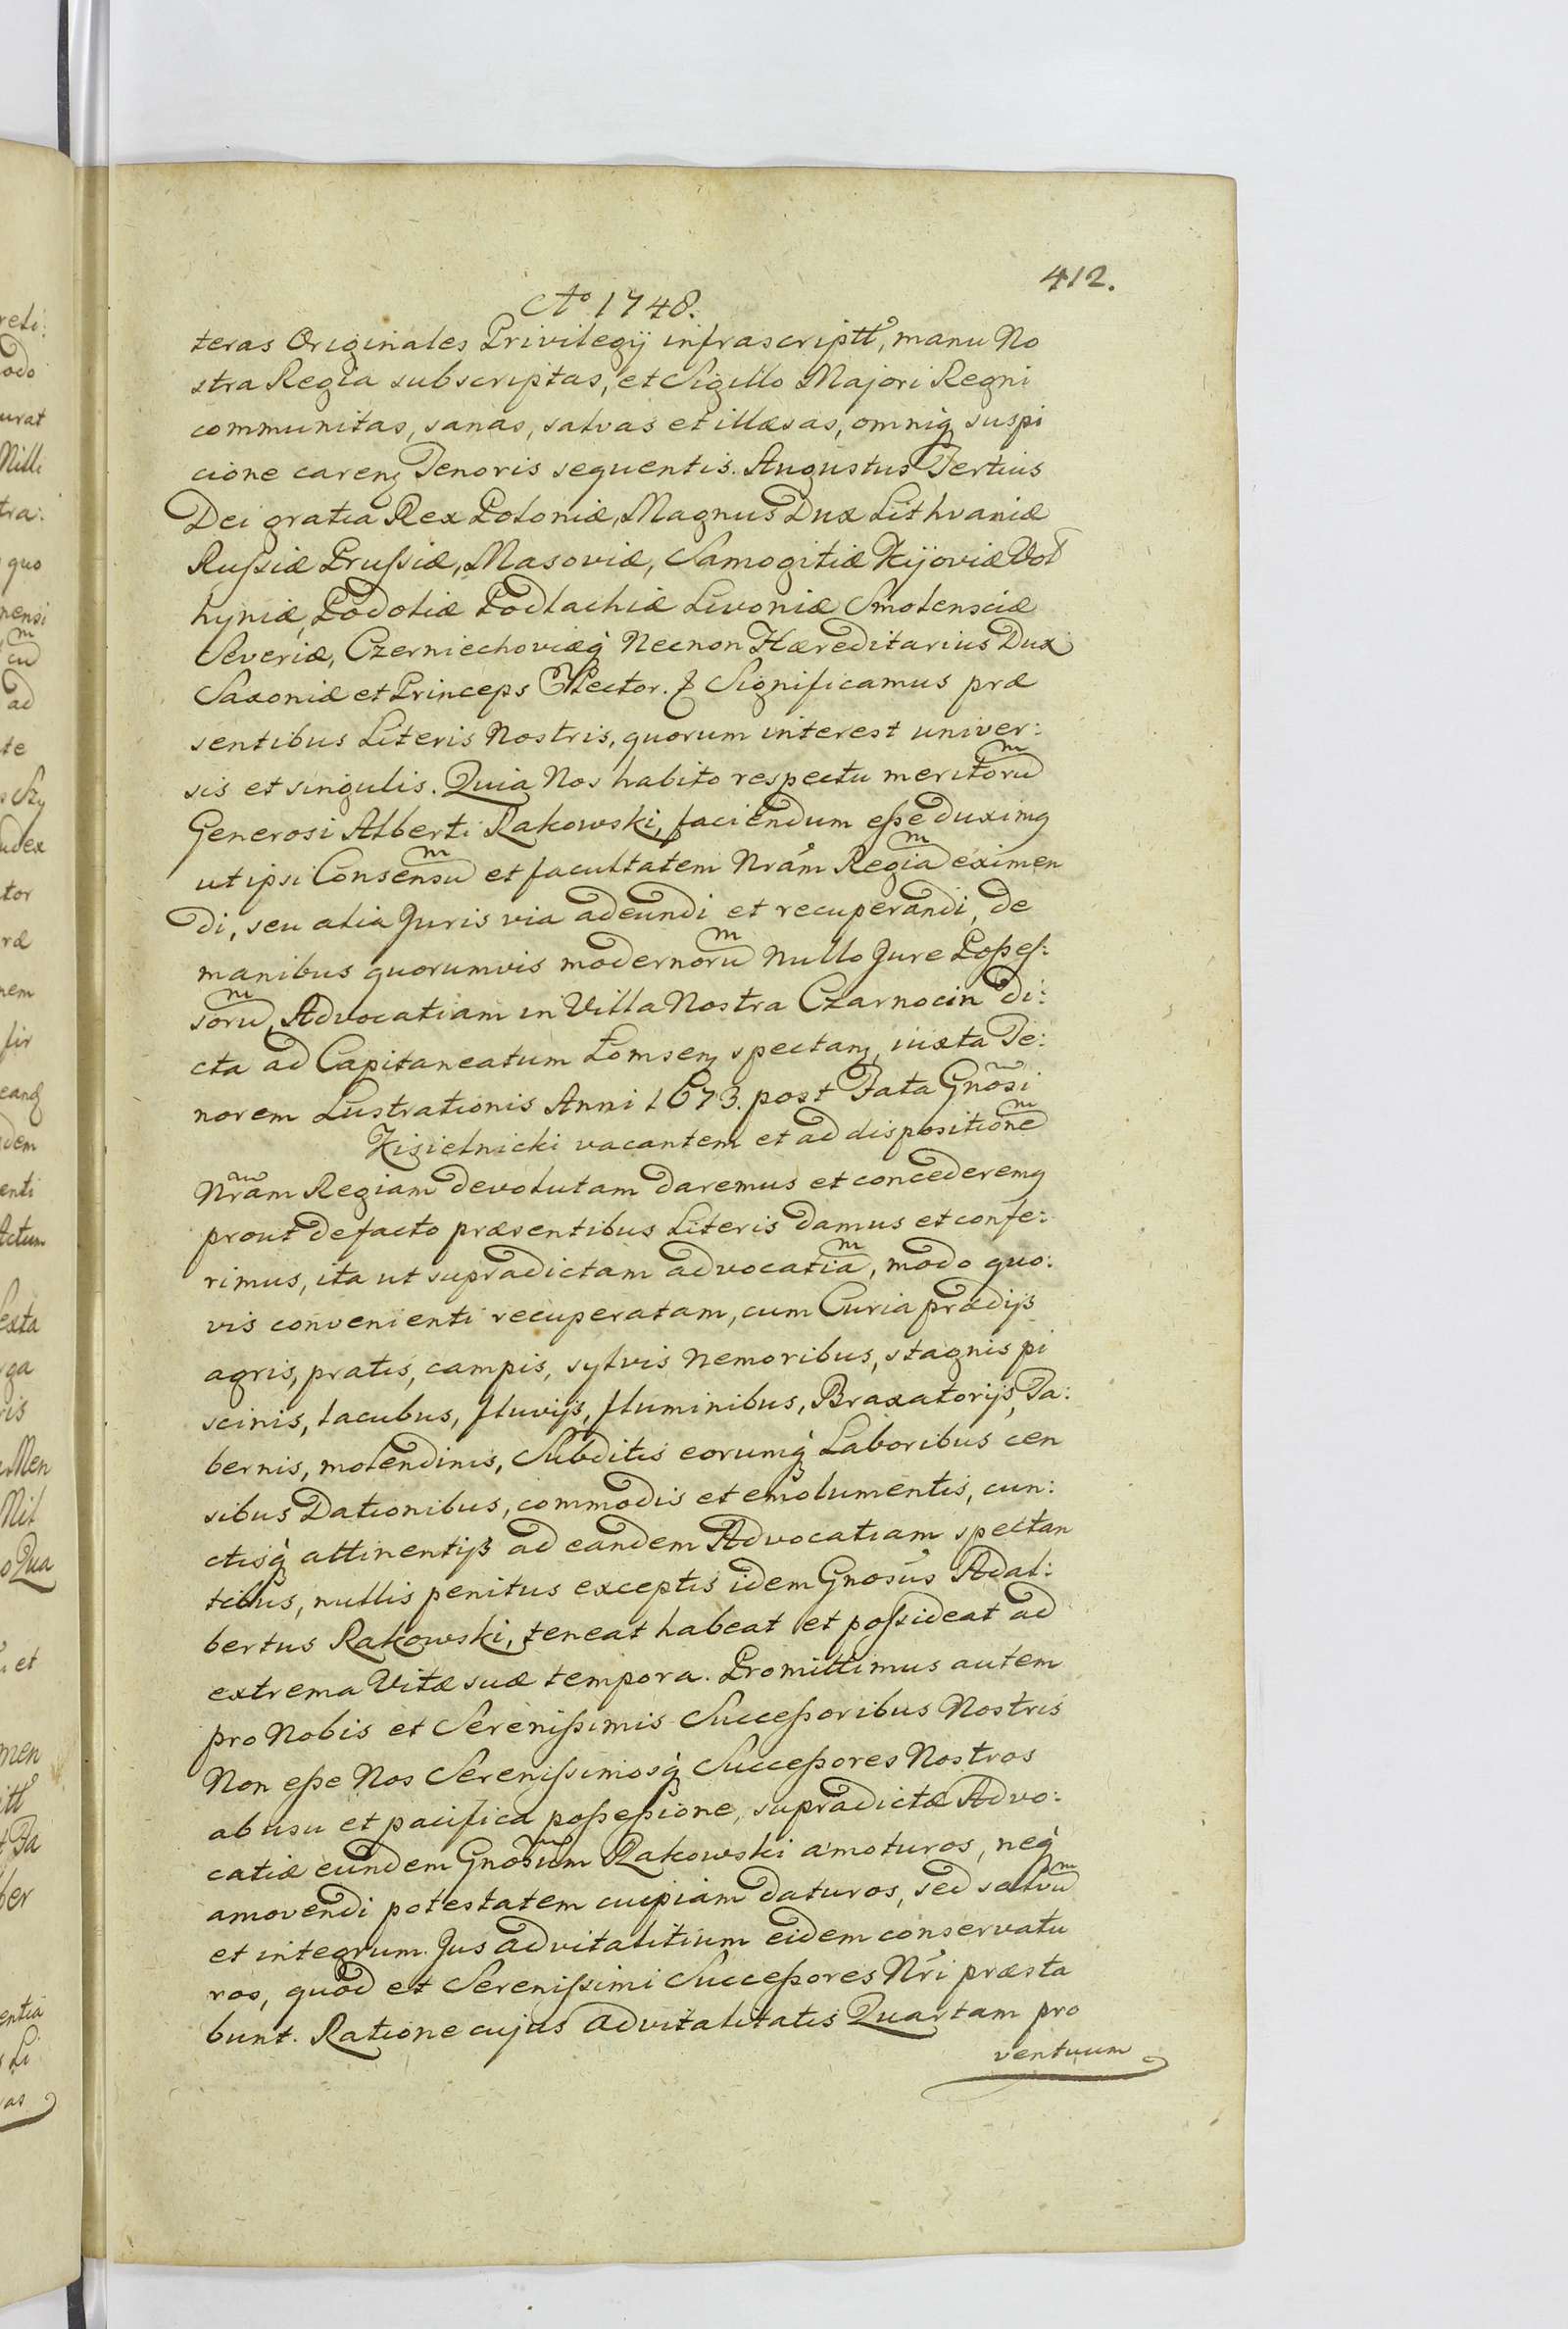 412.
Ao 1748.
teras Originales Privilegij infrascriptt, manu No
stra Regia subscriptas, et Sigillo Majori Regni
communitas, sanas, salvas et illæsas, omniq suspi
cione careng Tenoris sequentis. Augustus Tertius
Dei gratia Rex Poloniæ, Magnus Dux Lithvaniæ
Rußiæ Prußiæ, Masoviæ, Samogitiæ Kijoviæ Vol
hyniæ, Podoliæ Podlachiæ Livoniæ Smolensciæ
Severiæ, Czerniechoviæq Necnon Hæreditarius Dux
Saxoniæ et Princeps Elector. Significamus præ
sentibus Literis Nostris, quorum interest univer:
sis et singulis. Quia Nos habito respectu meritoru͞m
Generosi Alberti Rakowski, faciendum eße duximg
ut ipsi Consensu͞m et facultatem Nrãm Regia͞m eximen
di, seu alia Juris via adeundi et recuperandi, de
manibus quorumvis modernoru͞m nullo Jure Poßeß:
soru͞m, Advocatiam in Villa Nostra Czarnocin di:
cta ad Capitaneatum Łomseng spectang, iuxta Te:
norem Lustrationis Anni 1673. post Fata Gnõsi
Kisielnicki vacantem et ad dispositione͞m
Nrãm Regiam devolutam daremus et concederemg
prout de facto præsentibus Literis damus et confe:
rimus, ita ut supradictam advocatia͞m, modo quo:
vis convenienti recuperatam, cum Curia prædijs
agris, pratis, campis, sylvis nemoribus, stagnis pi
scinis, lacubus, fluvijs, fluminibus, Braxatorijs, Ta:
bernis, molendinis, Subditis eorumq Laboribus cen
sibus Dationibus, commodis et emolumentis, cun:
ctisq attinentijs ad eandem Advocatiam spectan
tibus, nullis penitus exceptis idem Gnosus Adal:
bertus Rakowski, teneat habeat et poßideat ad
extrema Vitæ suæ tempora. Promittimus autem
pro Nobis et Serenißimis Succeßoribus Nostris
Non eße Nos Serenißimosq Succeßores Nostros
ab usu et pacifica poßeßione, supradictæ Advo:
catiæ eundem Gnosũm Rakowski amoturos, neq
amovendi potestatem cuipiam daturos, sed salvu͞m
et integrum Jus advitalitium eidem conservatu
ros, quod et Serenißimi Succeßores Nri præsta
bunt. Ratione cujus advitalitatis Quartam pro
ventuum